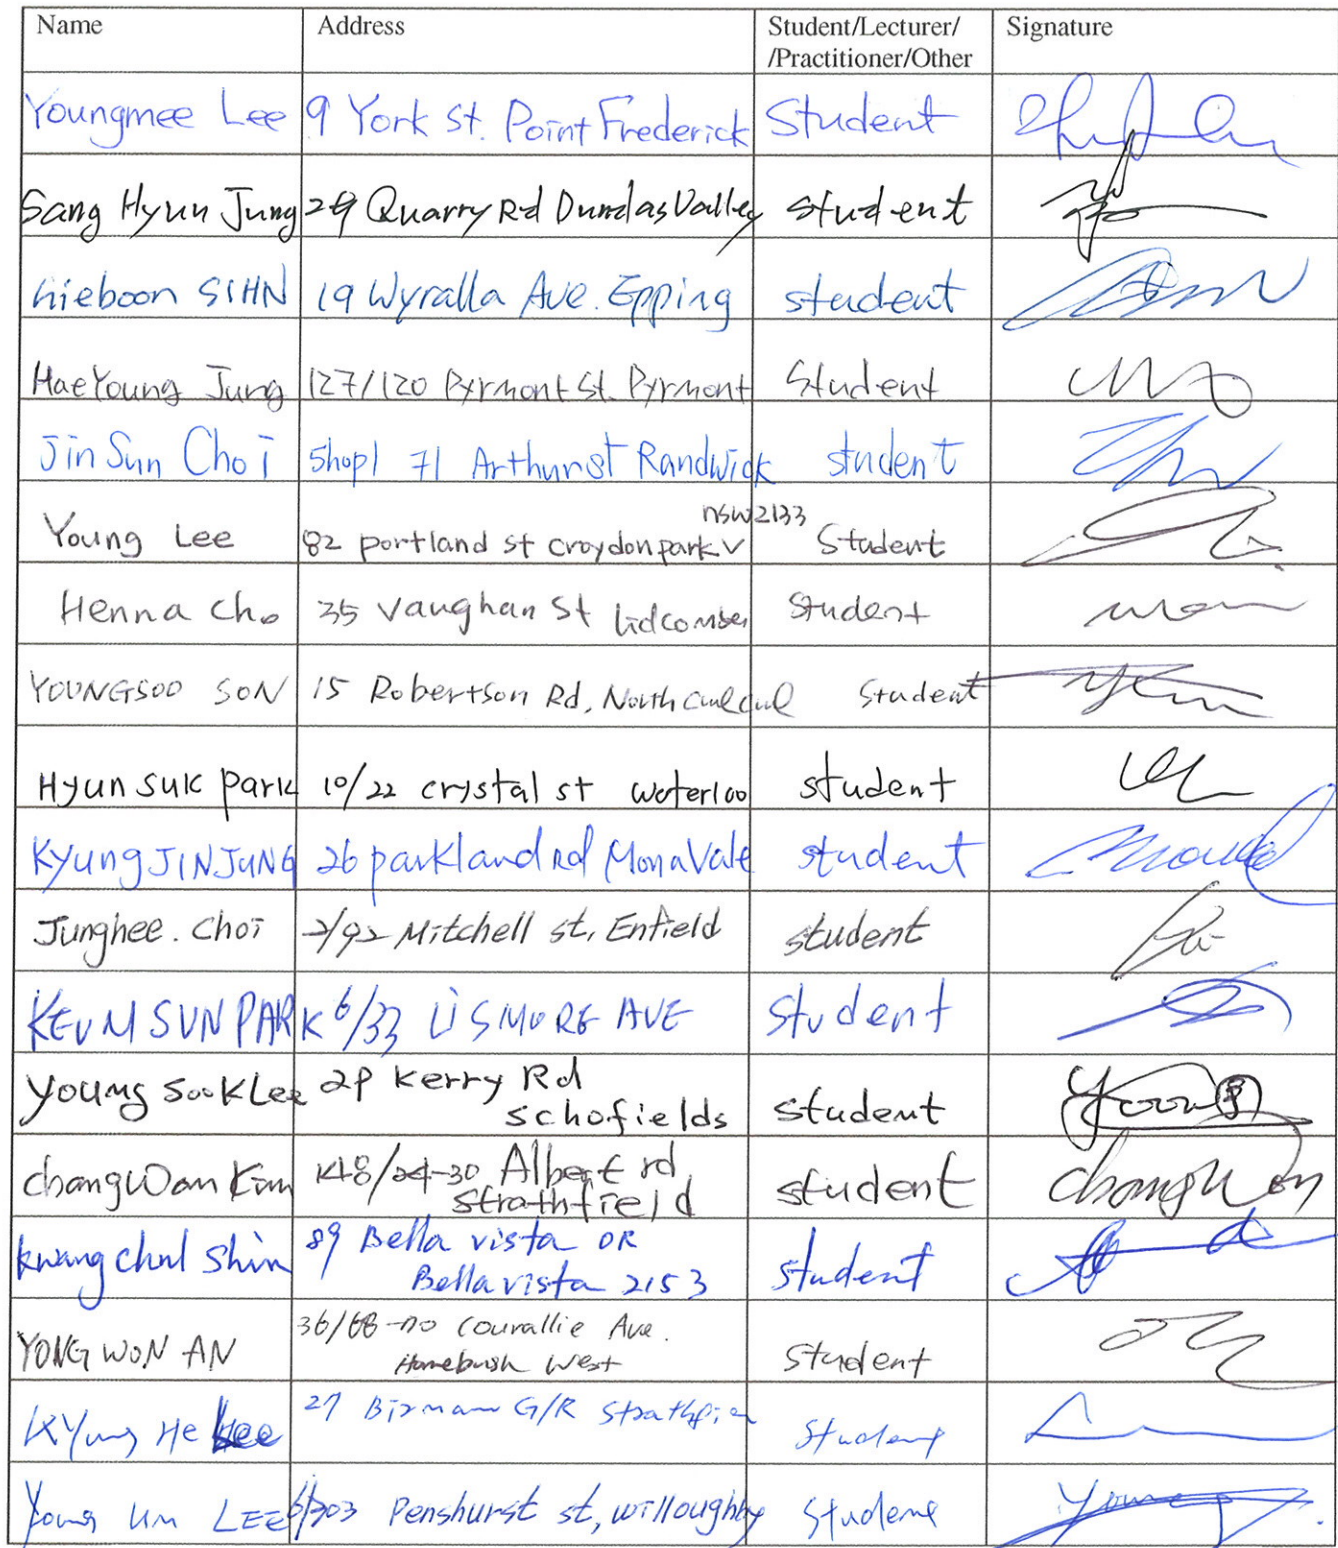 Name Address Student/Lecturer/ Signature
/Practitioner/Other
Youngmee Lee 9 York St. Point Frederick Student
Sang Hyun Jung 29 Quarry Rd Dundas Valley student
hieboon SIHN 19 Wyralla Ave. Epping student
HaeYoung Jung 127/120 Pyrmont St. Pyrmont Student
Jin Sun Choi Shop1 71 Arthurst Randwick student
nsw2133
Young Lee 82 portland st croydonpark Student
Henna cho 35 Vaughan St Lidcombe Student
YOUNGSOO SON 15 Robertson Rd, North curl curl Student
Hyun suk park 10/22 crystal st waterloo student
KyungJINJUNG 26 parkland Rd Mona Vale student
Junghee. choi 2/92 Mitchell st, Enfield student
KEUM SUN PARK 6/33 LISMORE AVE student
Young Sook Lee 28 Kerry Rd
schofields student
changWan Kim 48/24-30 Albert rd
strathfield student changwon
kwang chul shin 89 Bella vista DR
Bella vista 2153 student
YONG WON AN 36/68-70 Courallie Ave.
Homebush West student
Kyung He Lee 27 G/R Student
Young Um LEE 6/303 Penshurst st, willoughby Student Young